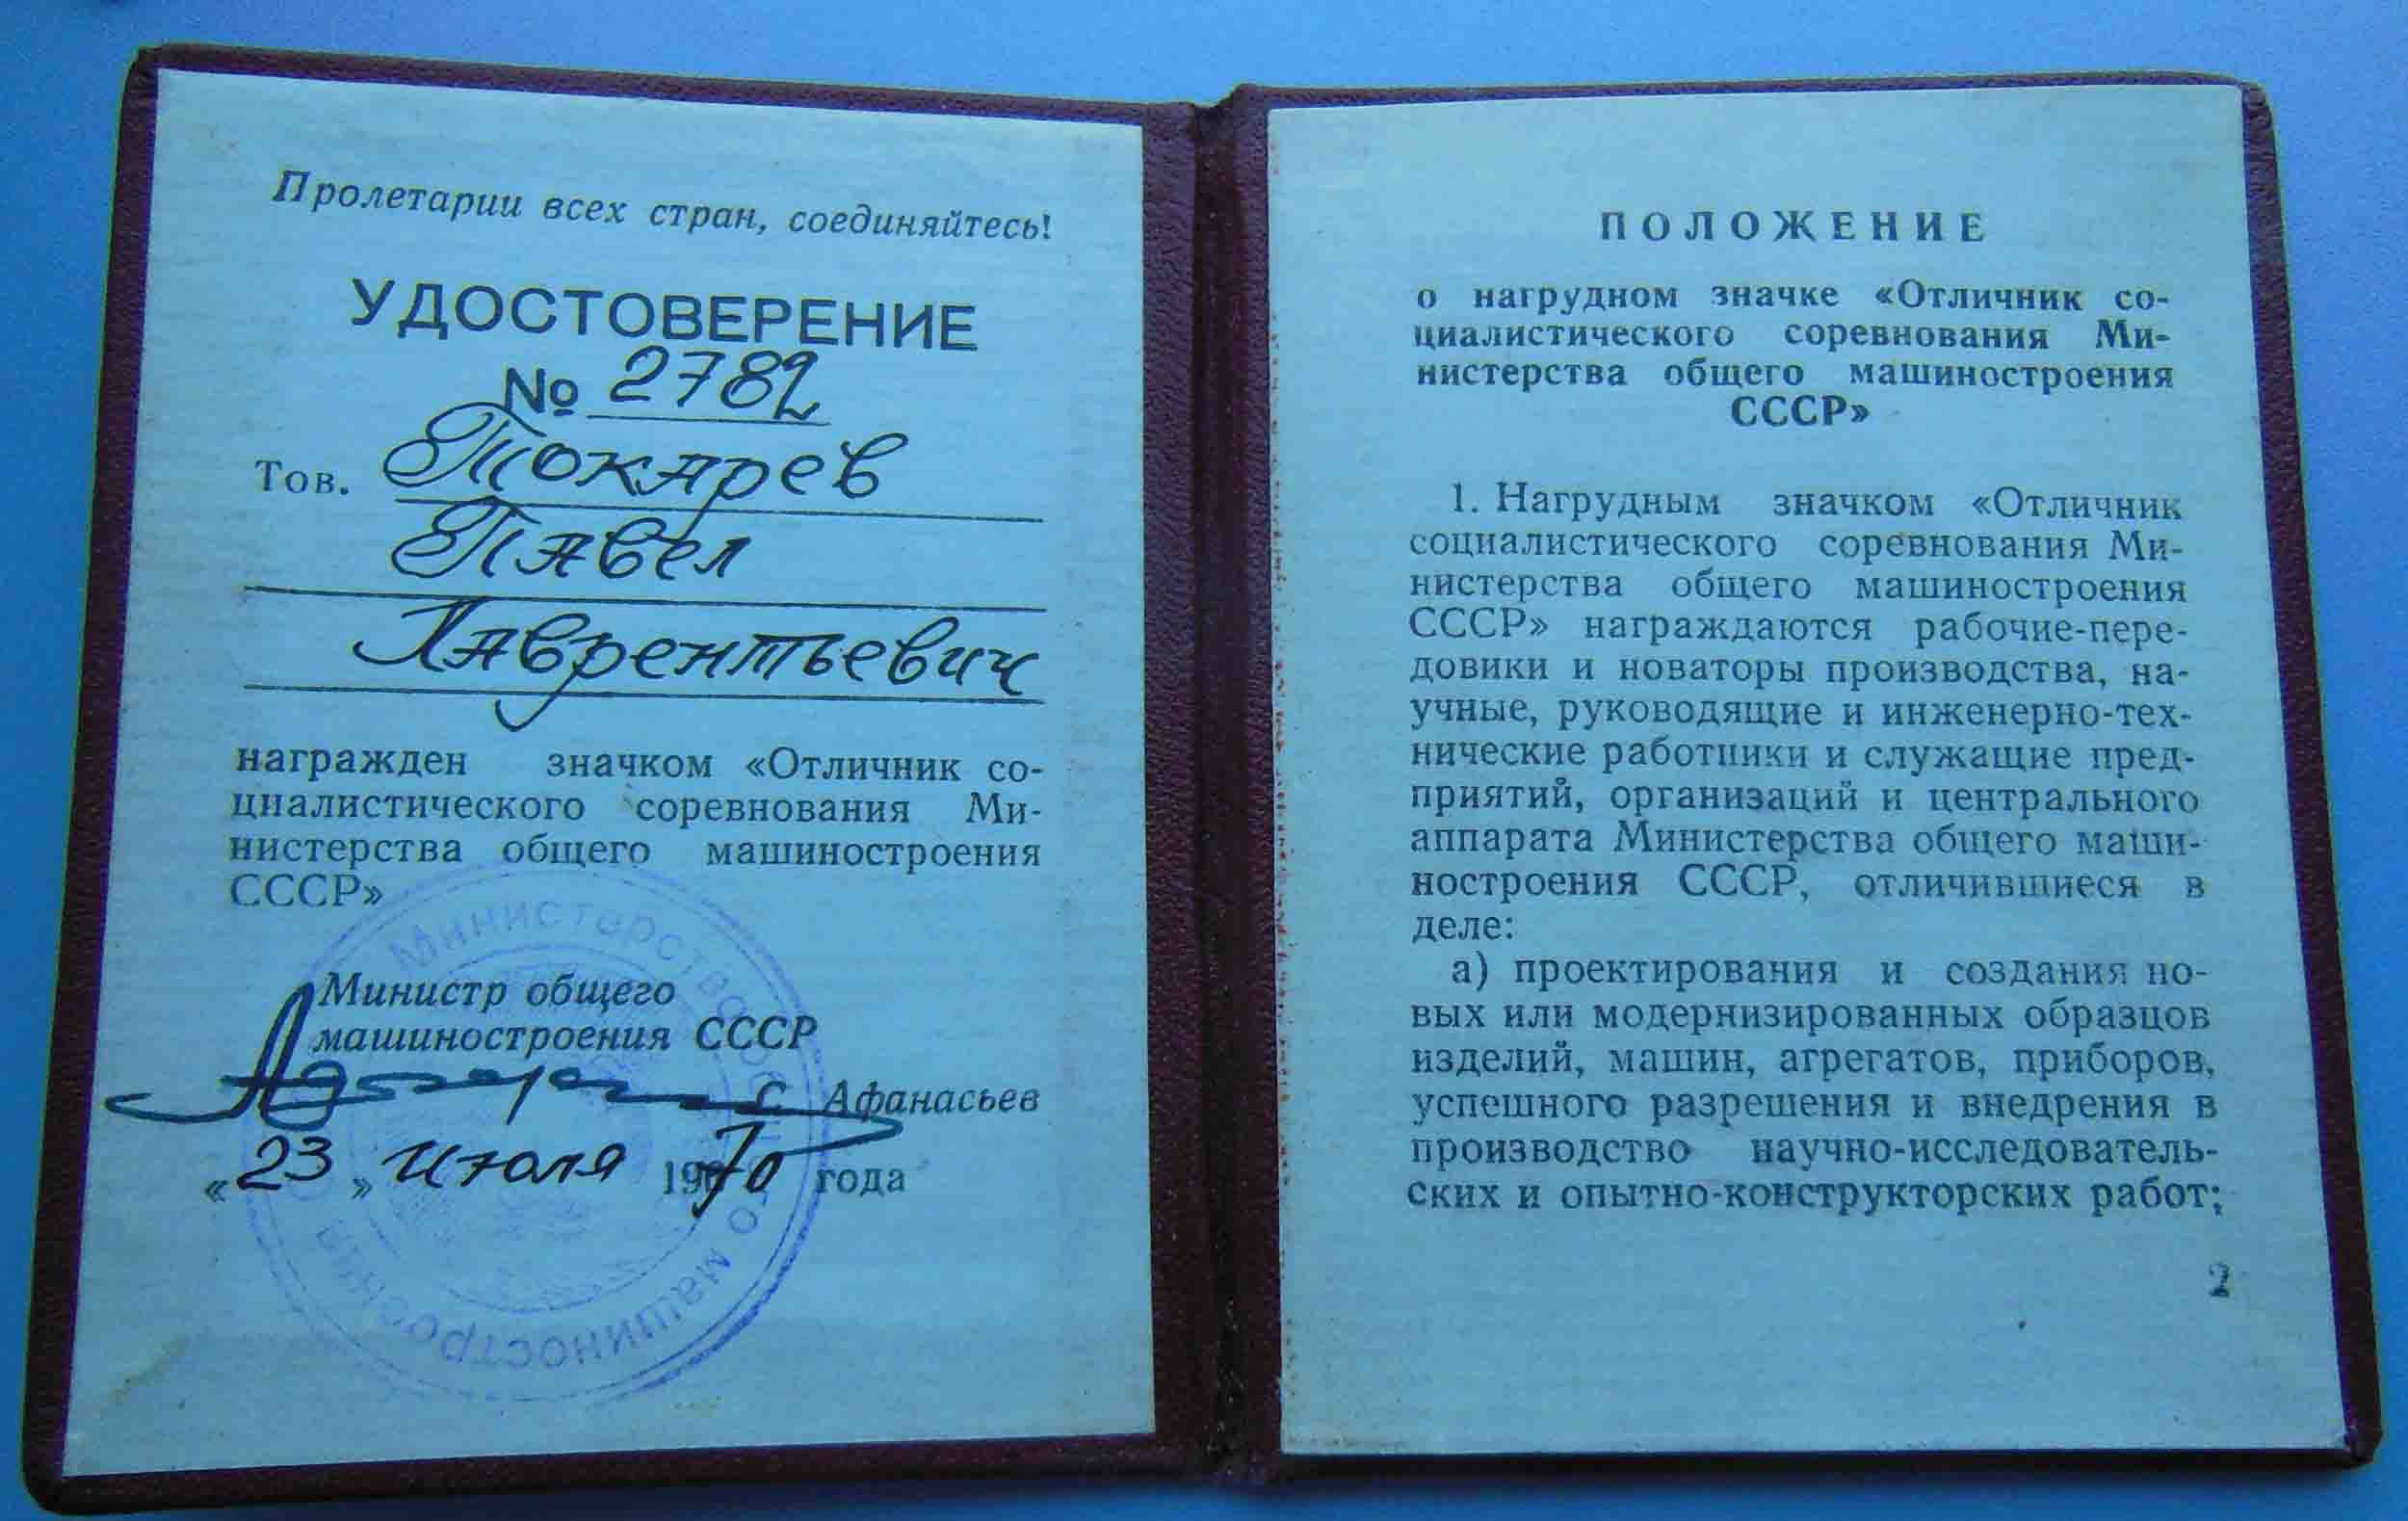 Пролетарии всех стран, соединяйтесь!
УДОСТОВЕРЕНИЕ
№ 2782
Тов. Токарев
Павел
Лаврентьевич
награжден значком «Отличник со-
циалистического соревнования Ми-
нистерства общего машиностроения
СССР»
Министр общего
машиностроения СССР
С. Афанасьев
«23» июля 1970 года
Министерство общего машиностроения
ПОЛОЖЕНИЕ
о нагрудном значке «Отличник со-
циалистического соревнования Ми-
нистерства общего машиностроения
СССР»
1. Нагрудным значком «Отличник
социалистического соревнования Ми-
нистерства общего машиностроения
СССР» награждаются рабочие-пере-
довики и новаторы производства, на-
учные, руководящие и инженерно-тех-
нические работники и служащие пред-
приятий, организаций и центрального
аппарата Министерства общего маши-
ностроения СССР, отличившиеся в
деле:
а) проектирования и создания но-
вых или модернизированных образцов
изделий, машин, агрегатов, приборов,
успешного разрешения и внедрения в
производство научно-исследователь-
ских и опытно-конструкторских работ;
2